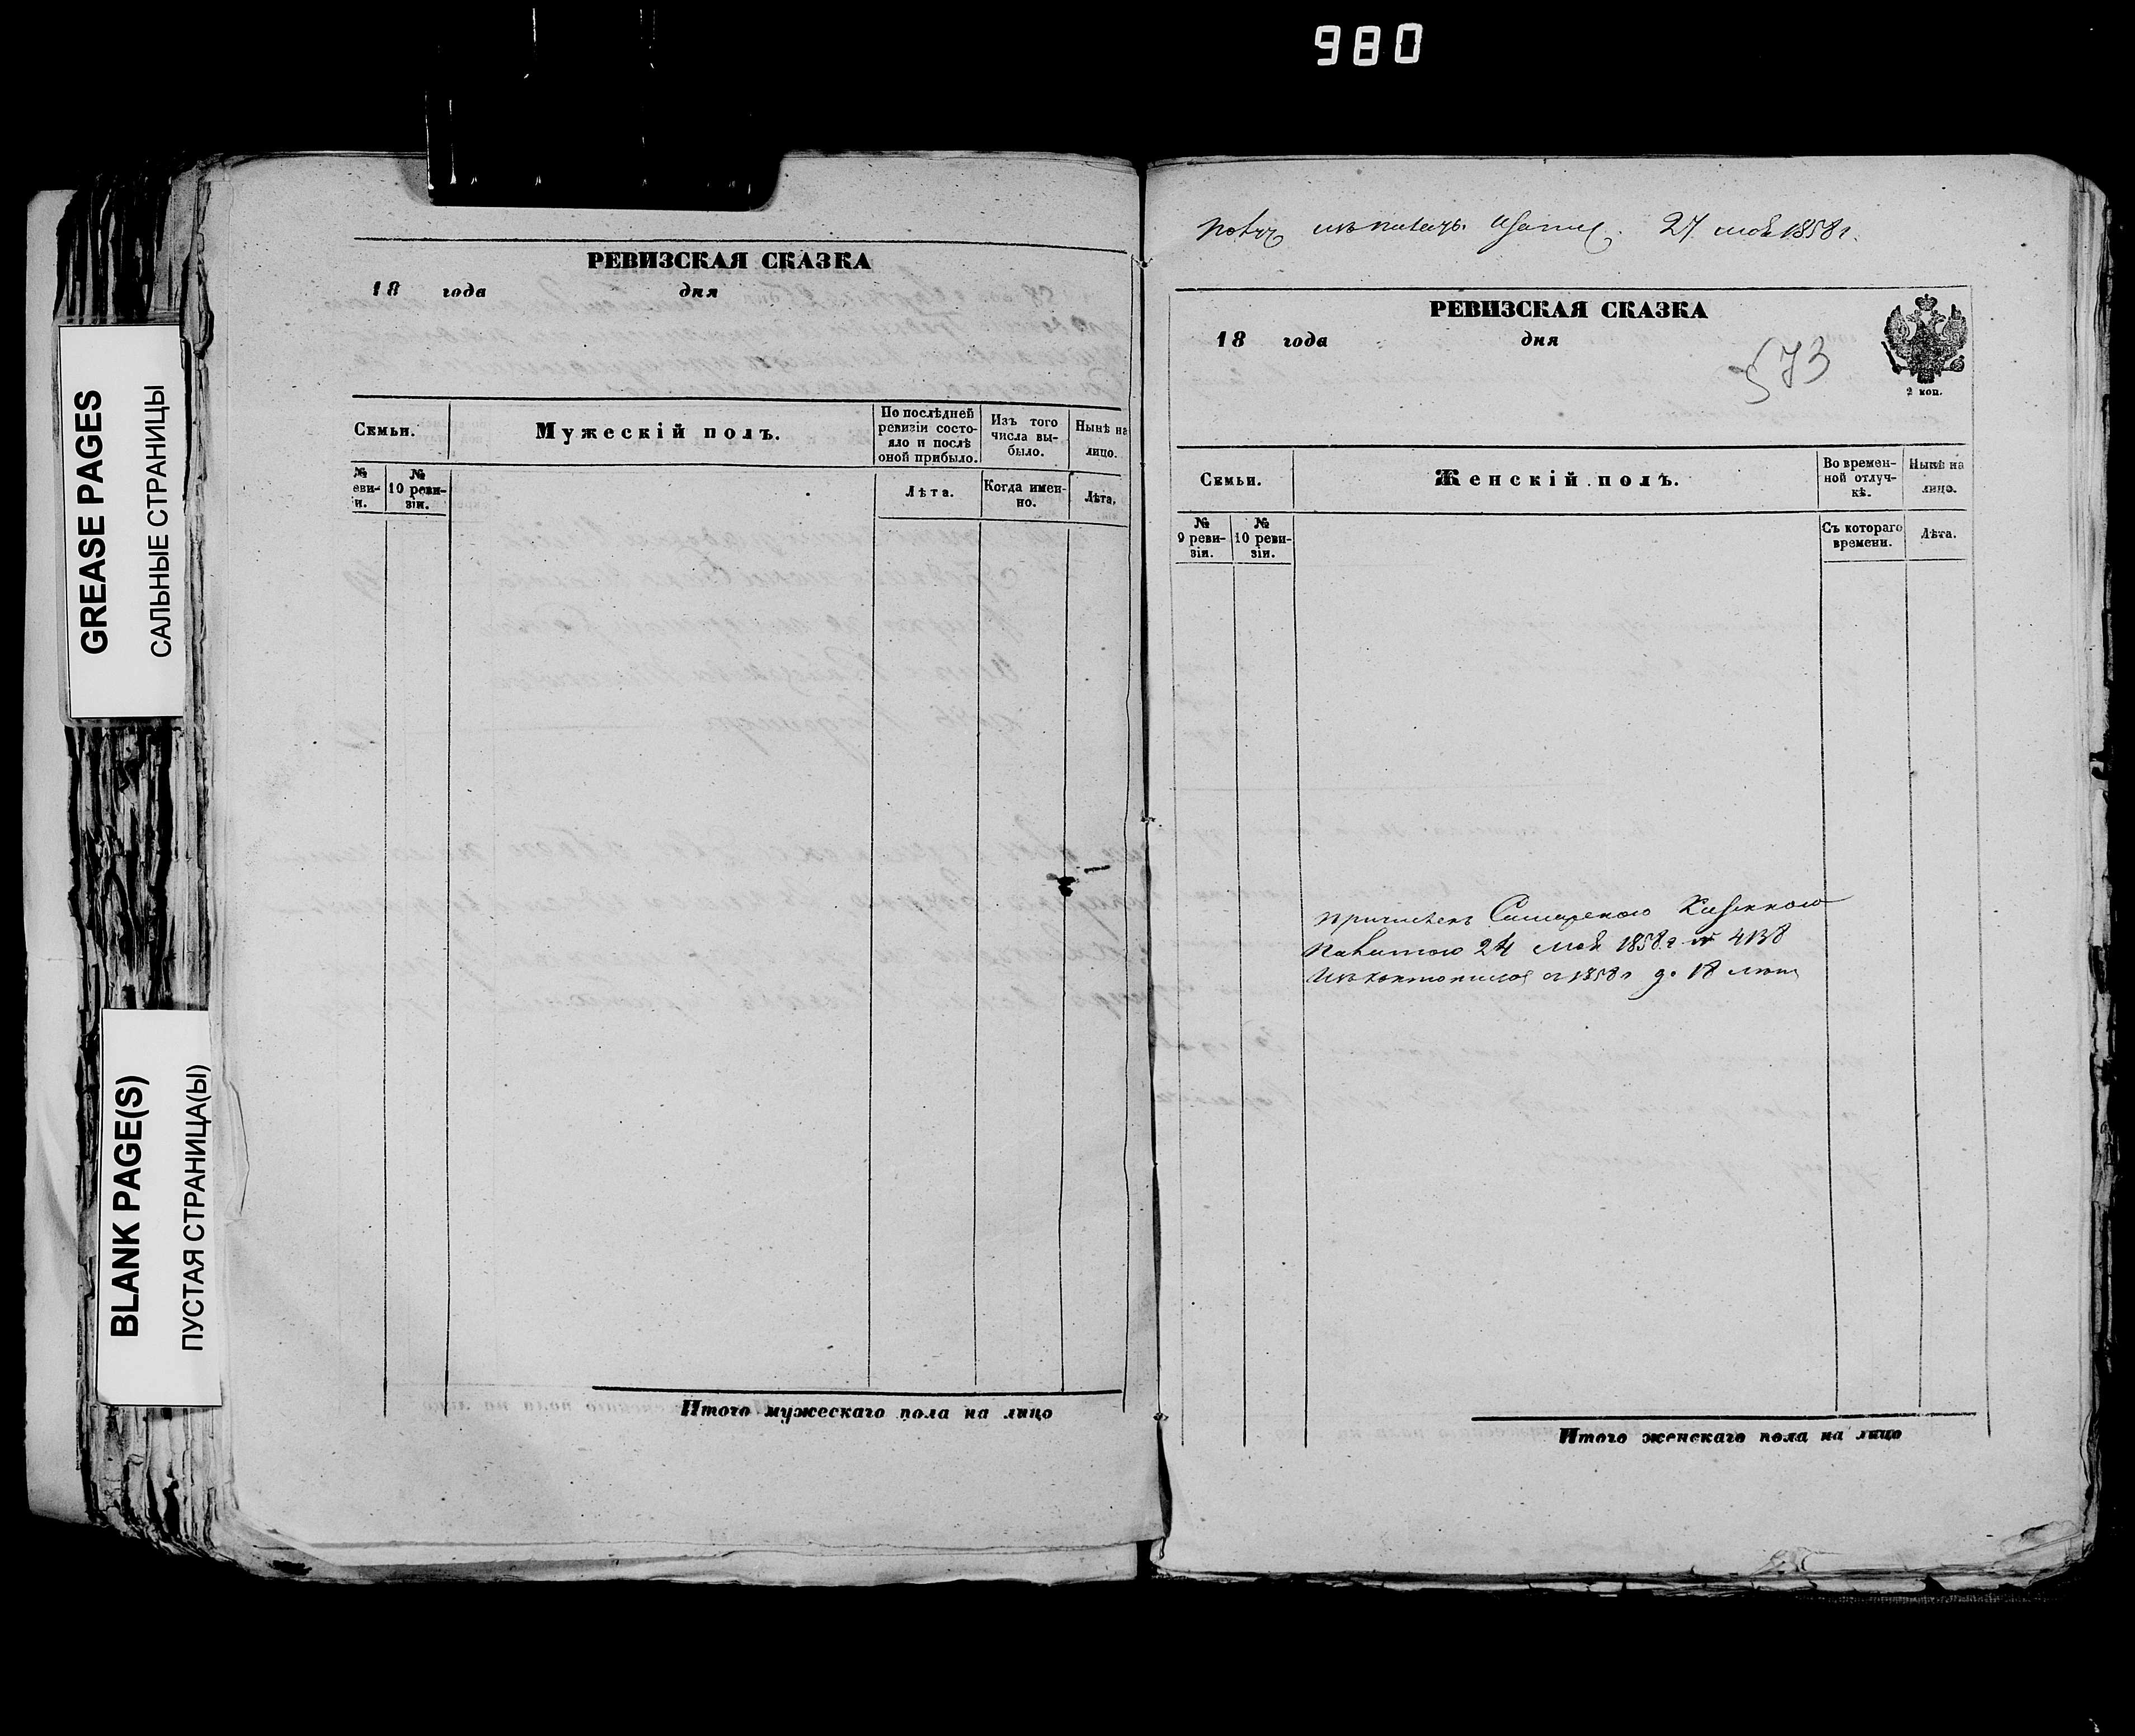 980
GREASE PAGES
САЛЬНЫЕ СТРАНИЦЫ
BLANK PAGE(S)
ПУСТАЯ СТРАНИЦА(Ы)
РЕВИЗСКАЯ СКАЗКА
18 года дня
Семьи.
Мужескій полъ.
По послѣдней
ревизіи состо-
яло и послѣ
оной прибыло.
Изъ того
числа вы-
было.
Нынѣ на
лицо.
№
еви-
и.
№
10 реви-
зіи.
Лѣта.
Когда имен-
но.
Лѣта.
Итого мужескаго пола на лицо
27 мая 1858 г.
РЕВИЗСКАЯ СКАЗКА
18 года дня
573
2 коп.
Семьи.
Женскій полъ.
Во времен-
ной отлуч-
кѣ.
Нынѣ на
лицо.
№
9 реви-
зіи.
№
10 реви-
зіи.
Съ котораго
времени.
Лѣта.
причислен Самарскою Казенною
Палатою 24 мая 1858 г № 4138
1858 г до 18
Итого женскаго пола на лицо